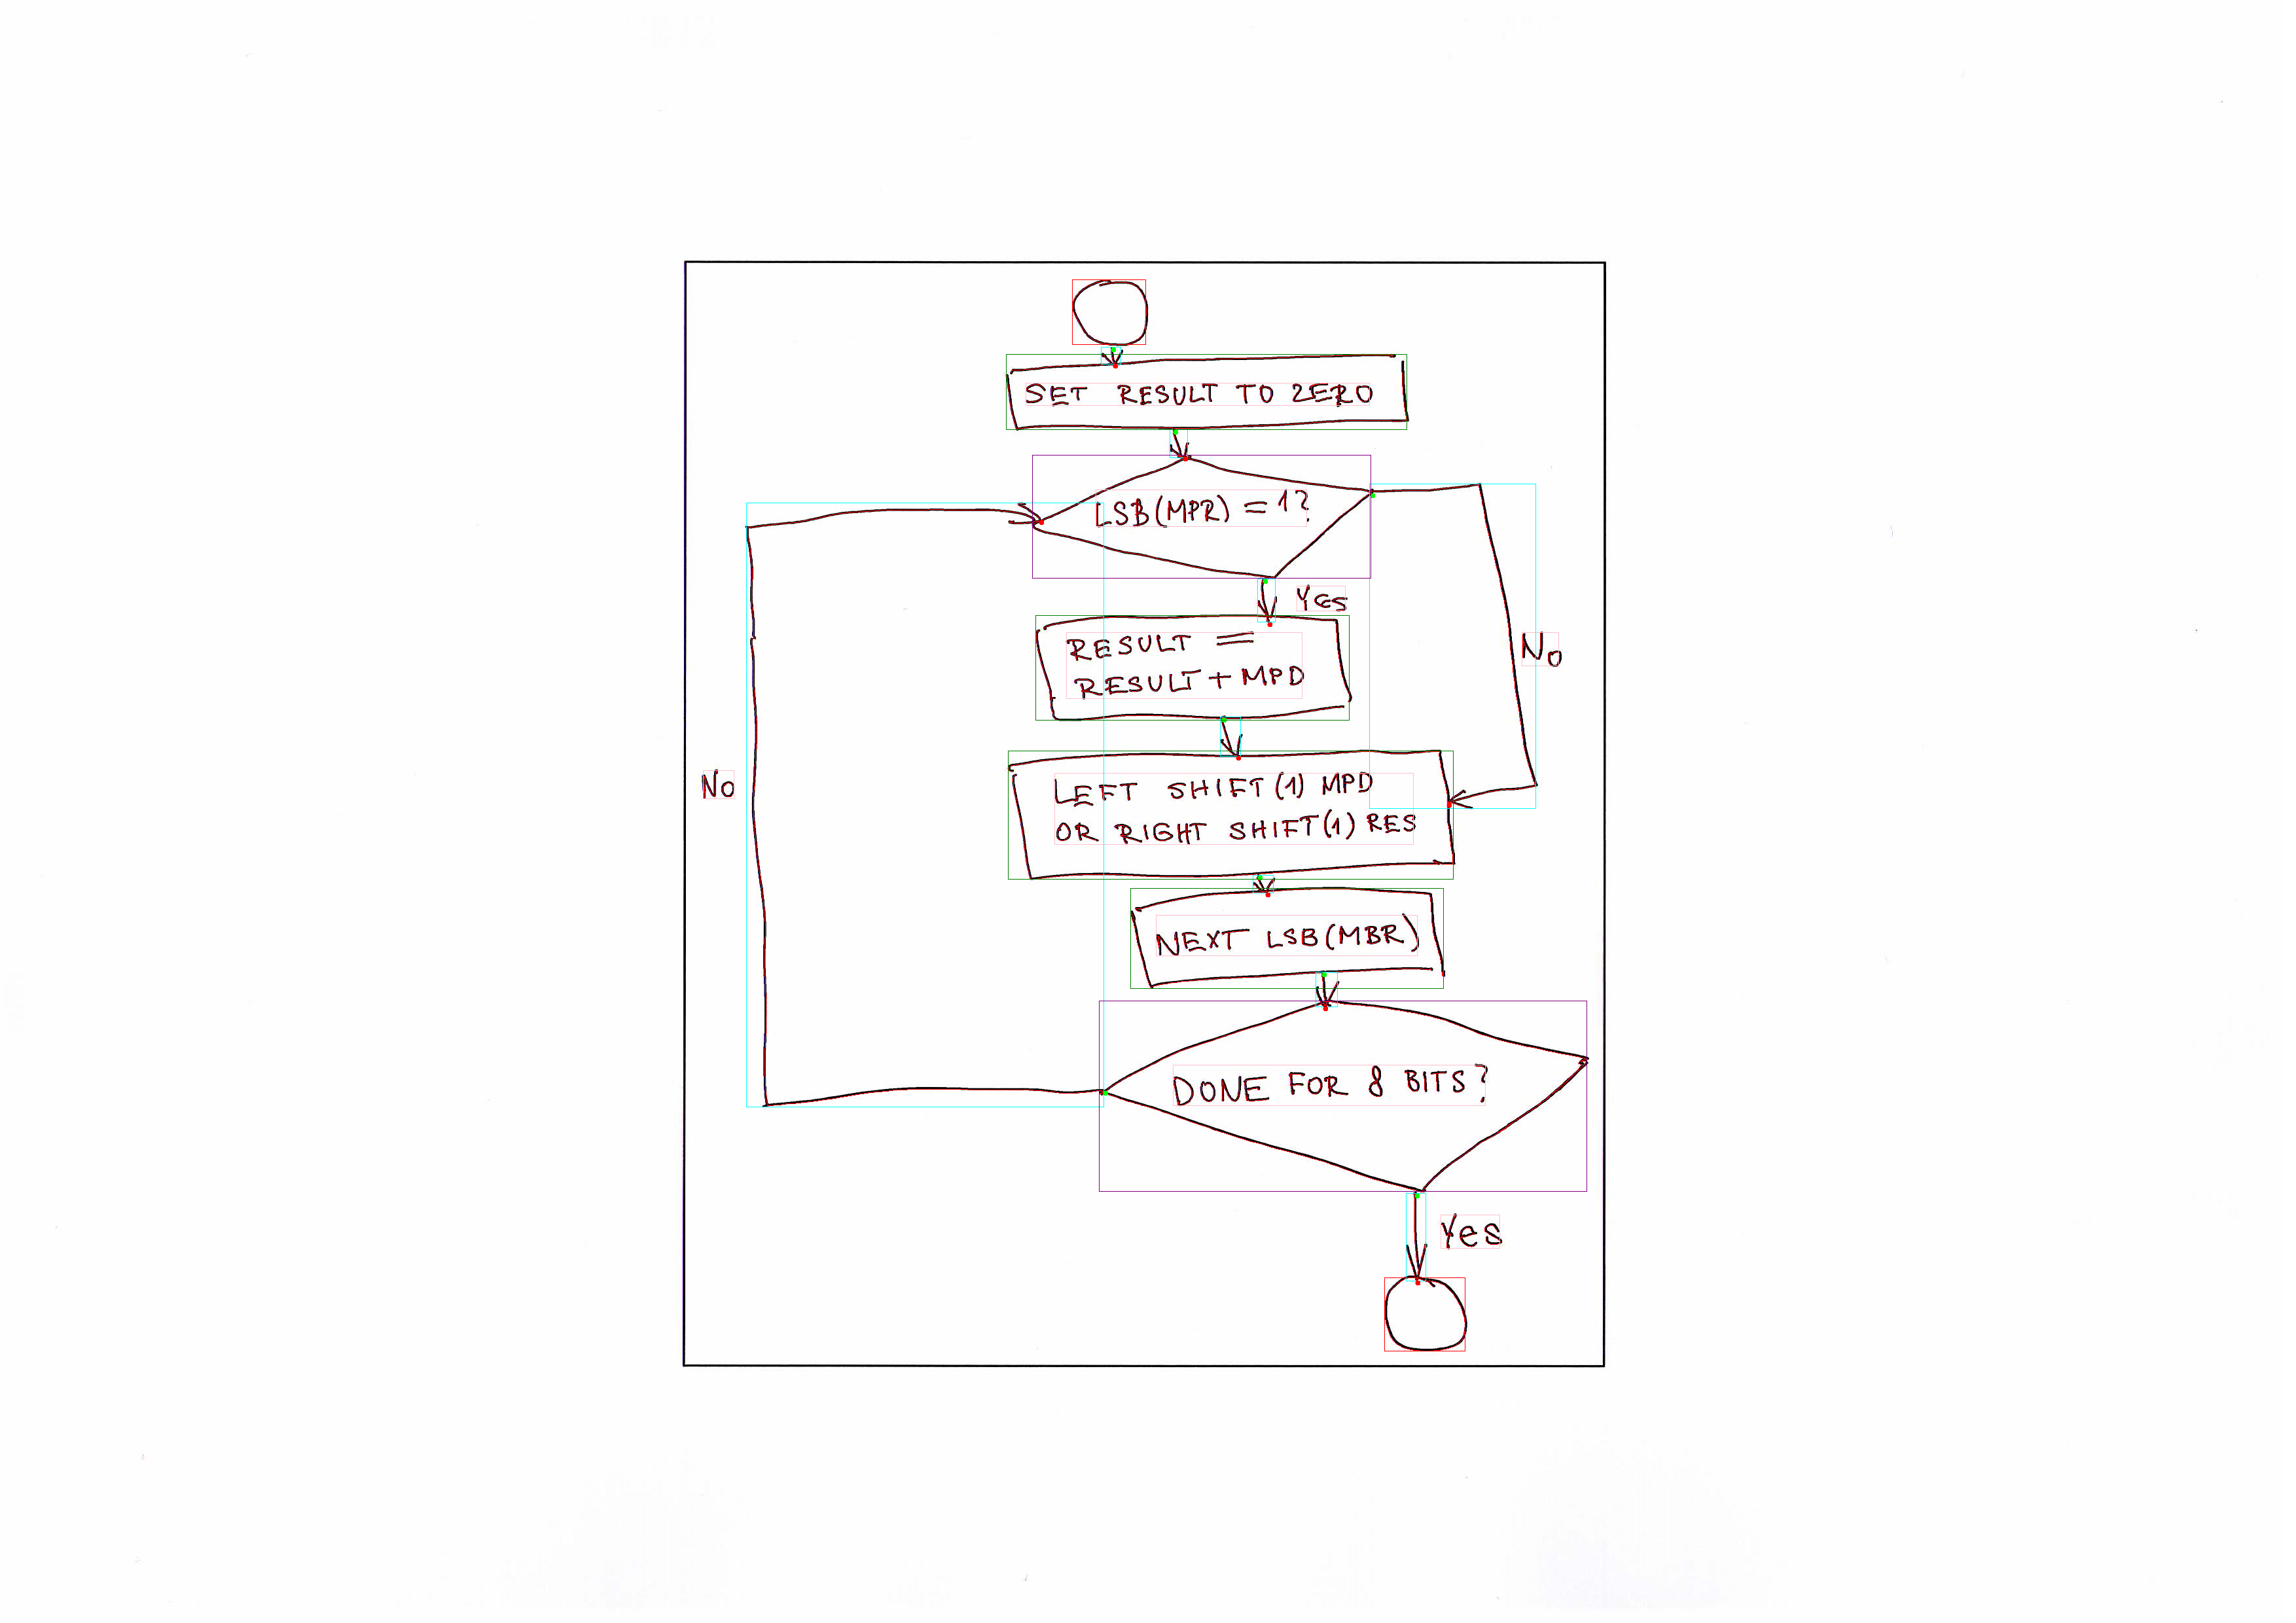 SET RESULT TO ZERO
LSB(MPR) = 1?
YES
RESULT =
RESULT + MPD
No
LEFT SHIFT(1) MPD
OR RIGHT SHIFT(1) RES
No
NEXT LSB(MBR)
DONE FOR 8 BITS?
Yes